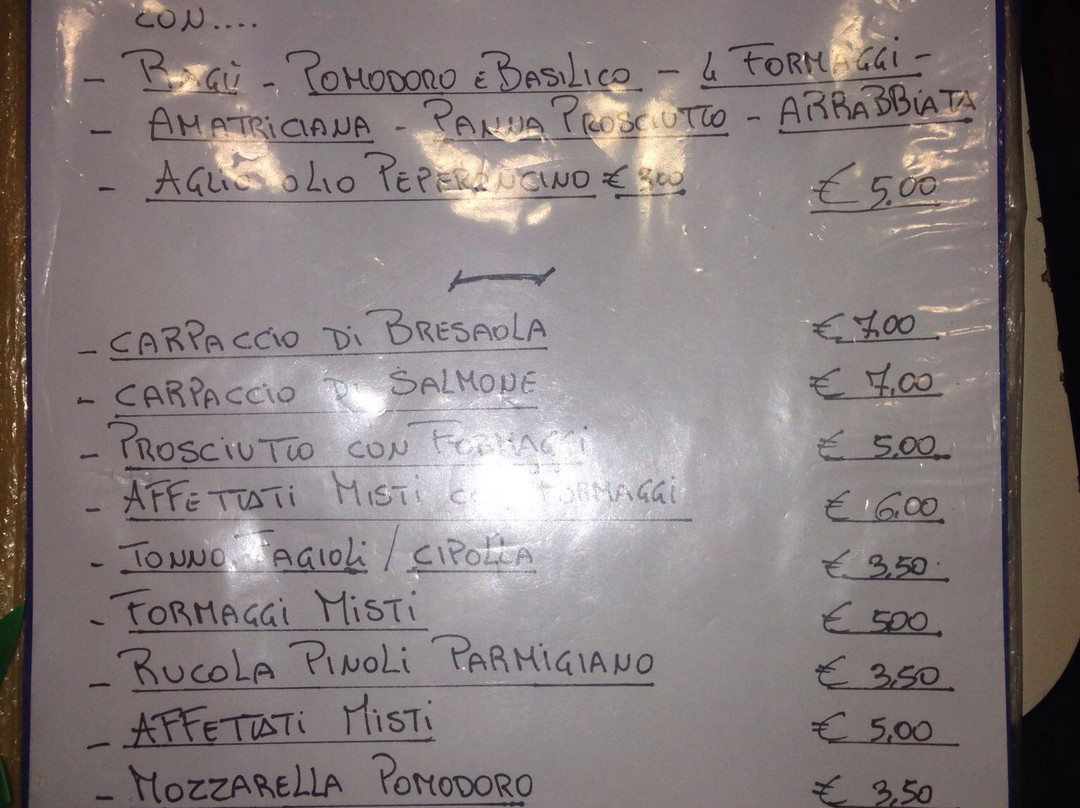 CON....
- RAGÙ - POMODORO E BASILICO - 4 FORMAGGI -
- AMATRICIANA - PANNA PROSCIUTTO - ARRABBIATA
- AGLIO OLIO PEPERONCINO € 3,00 € 5,00
- CARPACCIO DI BRESAOLA € 7,00
- CARPACCIO DI SALMONE € 7,00
- PROSCIUTTO CON FORMAGGI € 5,00
- AFFETTATI MISTI CON FORMAGGI € 6,00
- TONNO FAGIOLI / CIPOLLA € 3,50
- FORMAGGI MISTI € 500
- RUCOLA PINOLI PARMIGIANO € 3,50
- AFFETTATI MISTI € 5,00
- MOZZARELLA POMODORO € 3,50